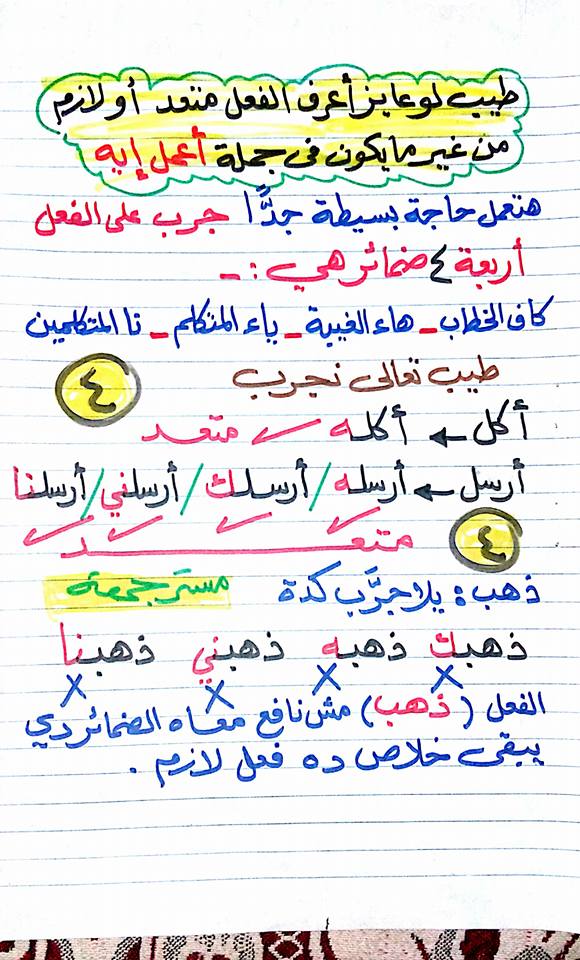 طيب لو عايز أعرف الفعل متعد أو لازم
من غير ما يكون في جملة أعمل إيه
هنعمل حاجة بسيطة جدًّا جرب على الفعل
أربعة ٤ ضمائر هي :-
كاف الخطاب - هاء الغيبة - ياء المتكلم - نا المتكلمين
طيب تعالى نجرب
٤
أكل ← أكله ✓ متعد
أرسل ← أرسله / أرسلك / أرسلني / أرسلنا
✓ ✓ ✓ ✓
متعد
٤
ذهب : يلا جرَّب كدة مستر جمعة
ذهبك ذهبه ذهبني ذهبنا
X X X X
الفعل (ذهب) مش نافع معاه الضمائر دي
يبقى خلاص ده فعل لازم .